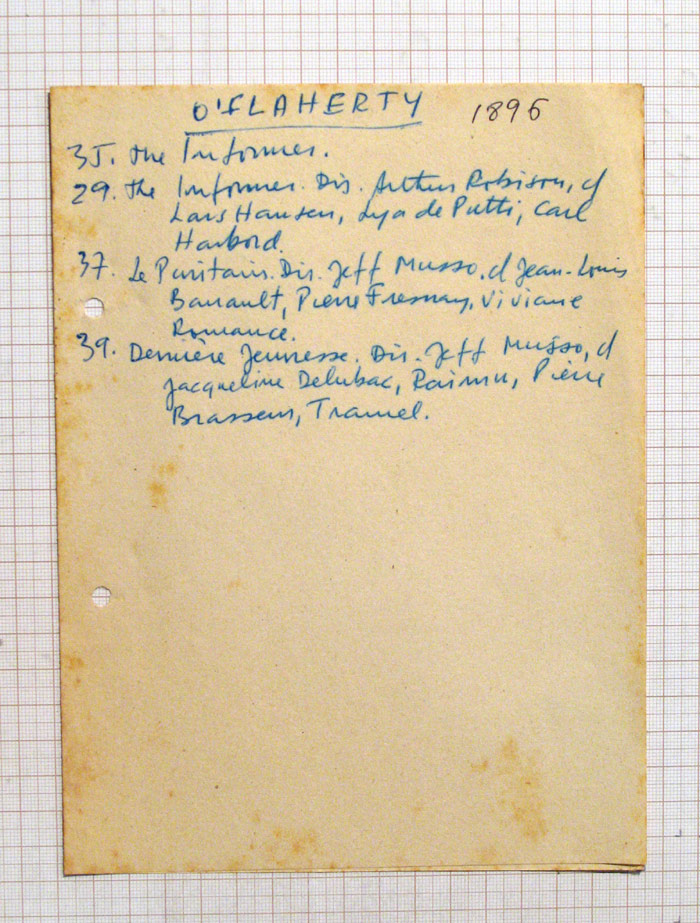 O'FLAHERTY 1896
35. The Informer.
29. The Informer. Dir. Arthur Robison, d
Lars Hansen, Lya de Putti, Carl
Harbord.
37. Le Puritain. Dir. Jeff Musso, d Jean-Louis
Barrault, Pierre Fresnay, Viviane
Romance.
39. Dernière Jeunesse. Dir. Jeff Musso, d
Jacqueline Delubac, Raimu, Pierre
Brasseur, Tramel.